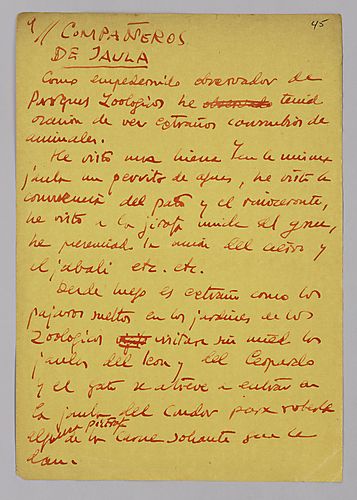 9 // COMPAÑEROS 45
DE JAULA
Como empedernido observador de
Parques Zoológicos he observado tenido
ocasión de ver extraños consorcios de
animales.
He visto una hiena en la misma
jaula un perrito de aguas, he visto la
convivencia del pato y el rinoceronte,
he visto a la jirafa unida al gnu,
he presenciado la unión del ciervo y
el jabalí etc. etc.
Desde luego es extraño como los
pájaros sueltos en los jardines de los
Zoológicos visitan sin miedo las
jaulas del León y del Leopardo
y el gato se atreve a entrar en
la jaula del Condor para robarle
una piltrafa
algo de la carne sobrante que le
dan.